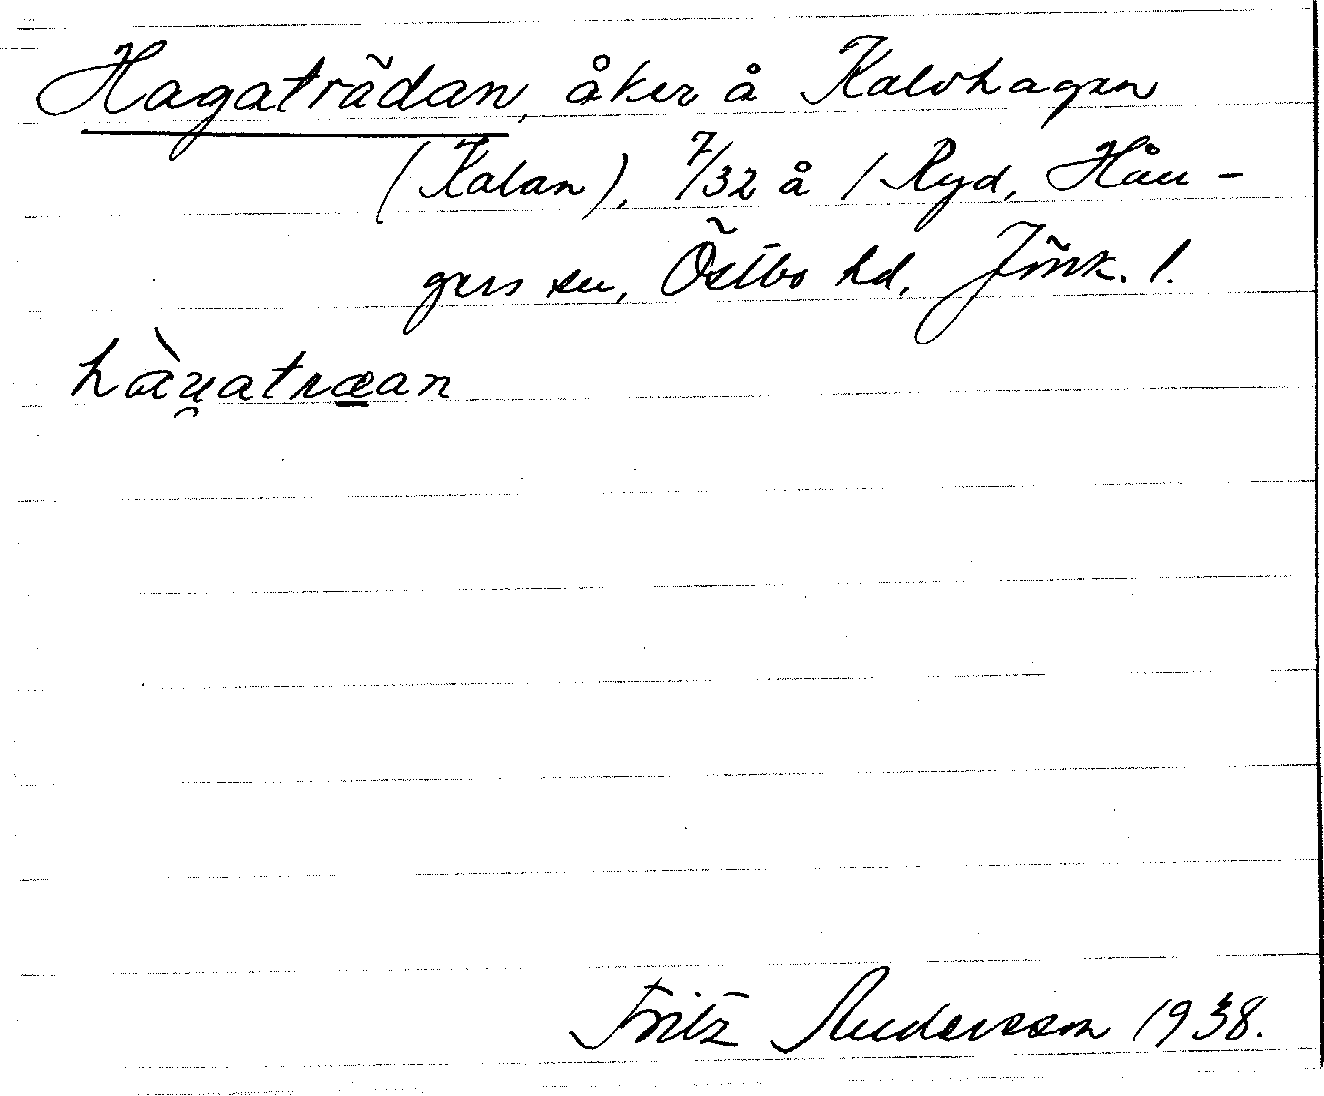 Hagaträdan, åker å Kalvhagen
(Kalan), 7/32 å 1 Ryd, Hån-
gers sn, Östbo hd, Jönk. l.
hàu̯atræan
Fritz Andersson 1938.